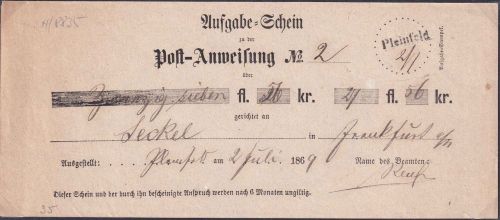 Aufgabe-Schein
zu der
Post-Anweisung № 2
über
Zwanzig sieben fl. 56 kr. 27 fl. 56 kr.
gerichtet an
Seckel in Frankfurt a/m
Ausgestellt: Pleinfeld am 2 Juli 1869 Name des Beamten:
Dieser Schein und der durch ihn bescheinigte Anspruch werden nach 6 Monaten ungiltig.
Pleinfeld
2/7
Aufgabe-Stempel.
35